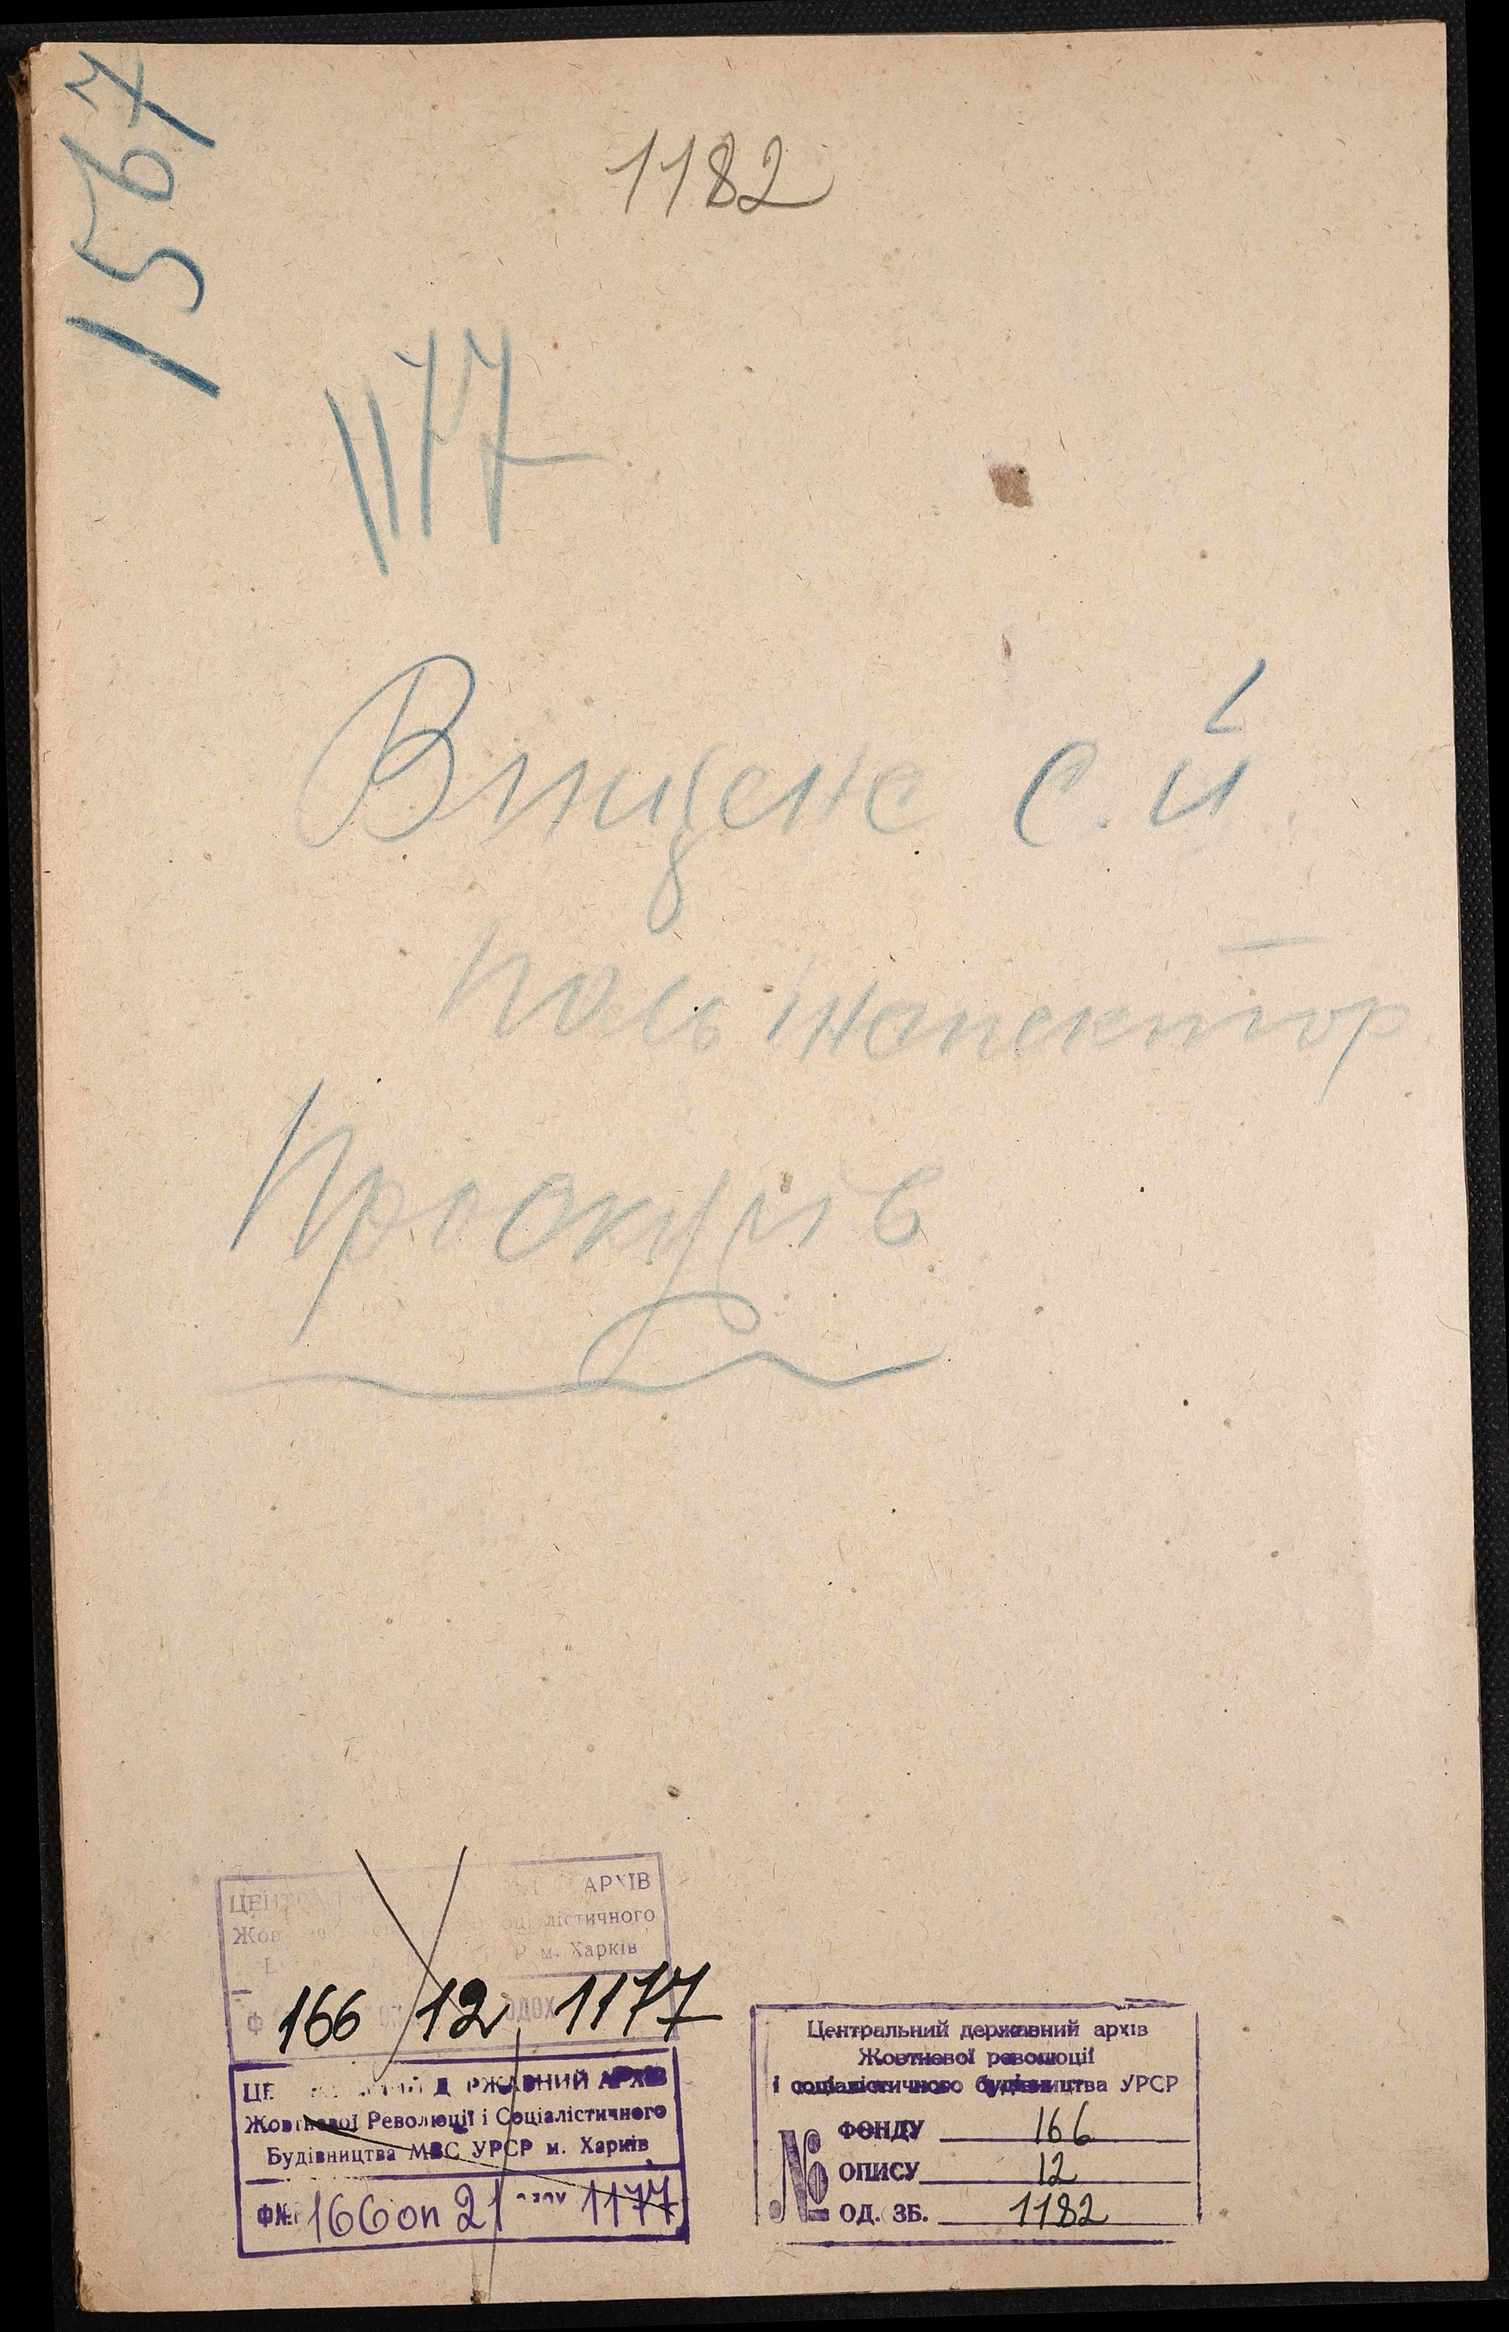 1567
1182
1177
Вищене С. Й
Поль інспектор
Проскурів
АРХІВ
Жов
лістичного
м. Харків
166 12 1177
ЖАВНИЙ АРХІВ
Жовтневої Революції і Соціалістичного
Будівництва МВС УРСР м. Харків
Ф№ 166 оп 21 1177
Центральний державний архів
Жовтневої революції
і соціалістичного будівництва УРСР
№
ФОНДУ 166
ОПИСУ 12
ОД. ЗБ. 1182